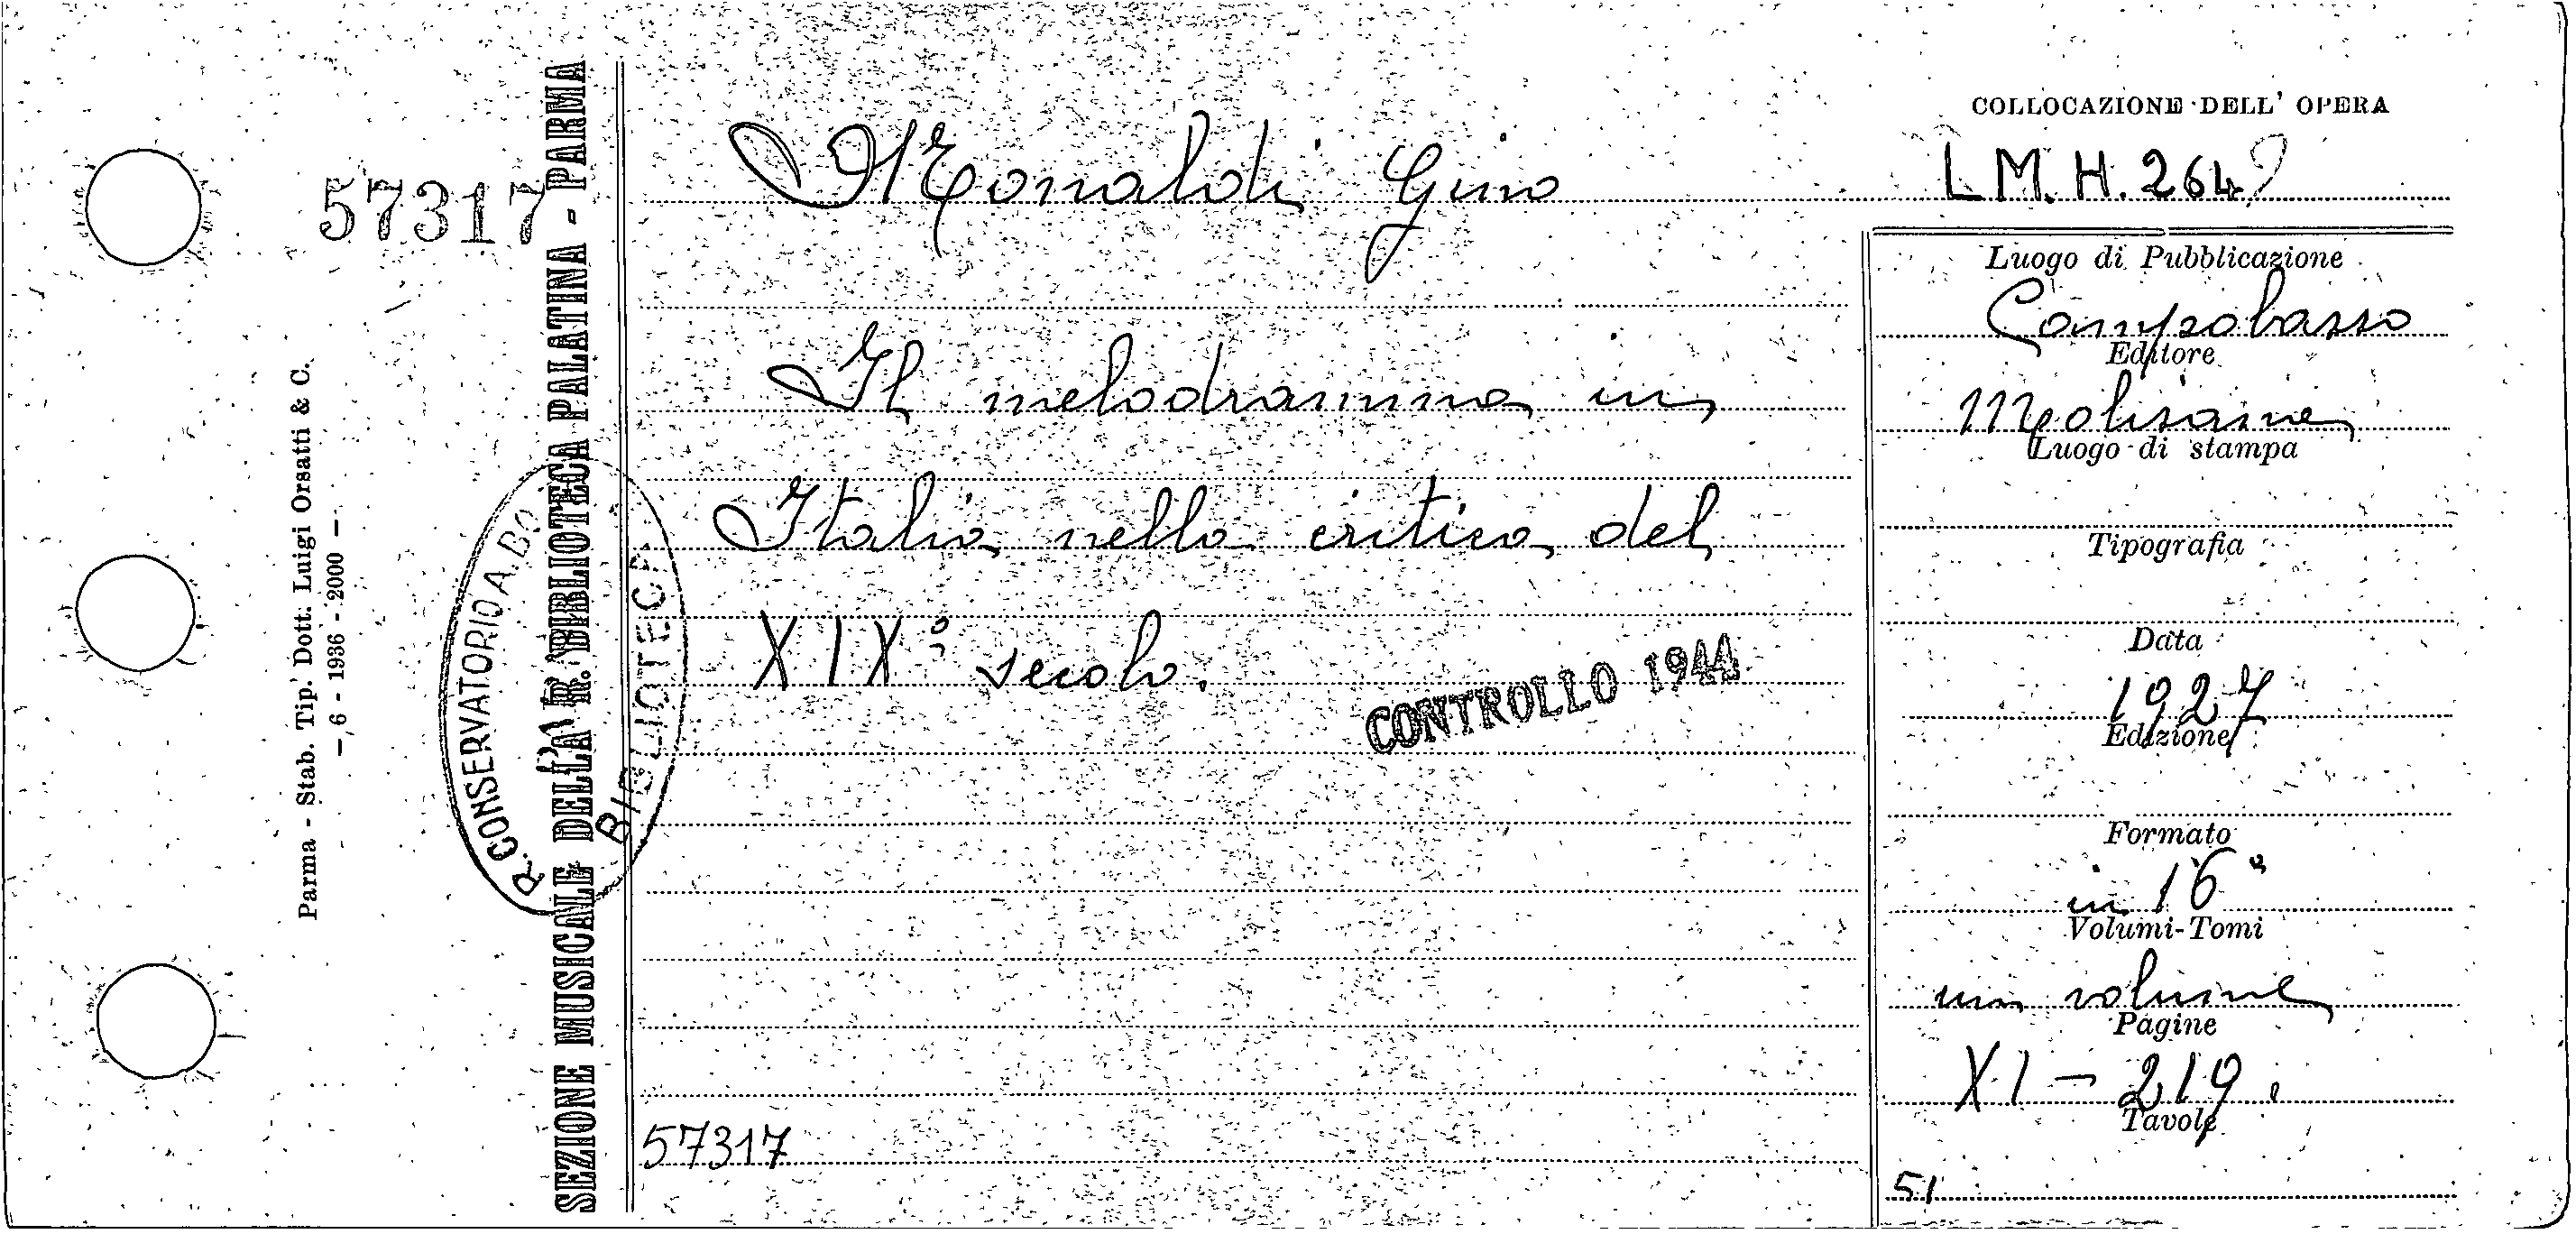 57317
Parma - Stab. Tip. Dott. Luigi Orsatti & C.
- 6 - 1936 - 2000 -
SEZIONE MUSICALE DELLA R. BIBLIOTECA PALATINA - PARMA
R. CONSERVATORIO A. BO
BIBLIOTECA
Monaldi Gino
Il melodramma in
Italia nella critica del
XIX° secolo.
CONTROLLO 1944
57317
COLLOCAZIONE DELL' OPERA
L M. H. 264
Luogo di Pubblicazione
Campobasso
Editore
Molisana
Luogo di stampa
Tipografia
Data
1927
Edizione
Formato
in 16°
Volumi-Tomi
un volume
Pagine
XI - 219.
Tavole
51